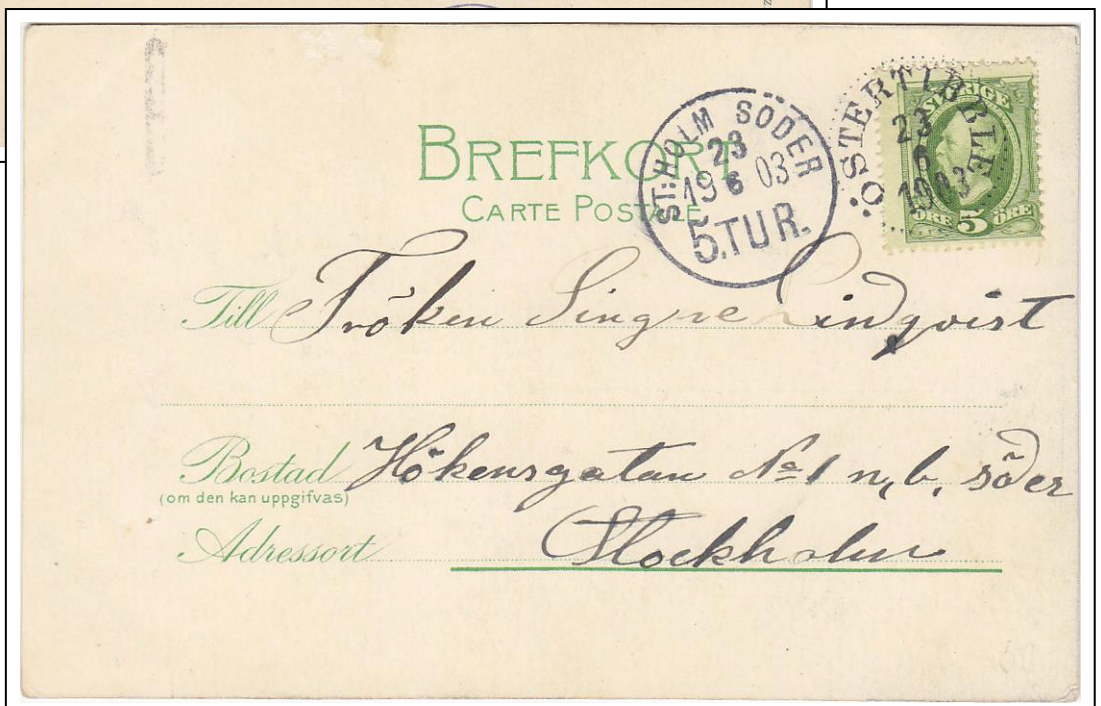 BREFKORT
CARTE POSTALE
ST:HOLM SÖDER
23
19 6 03
5.TUR.
ÖSTERTIBBLE
23
6
1903
SVERIGE
ÖRE 5 ÖRE
Till Fröken Singne Lindqvist
Bostad Hökensgatan № 1 n, b, söder
(om den kan uppgifvas)
Adressort Stockholm